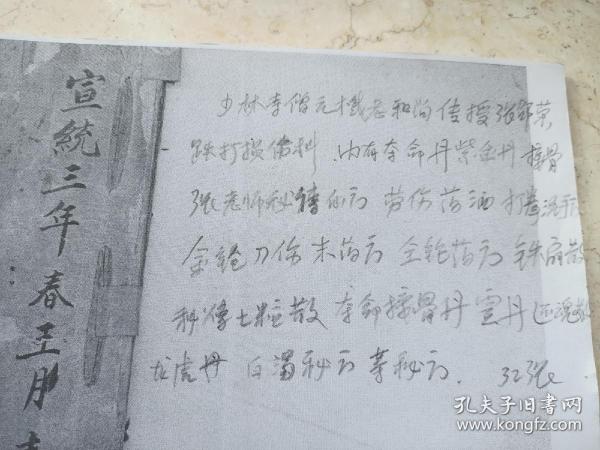 宣統三年春王月
少林李僧元機老和尚传授张
跌打损伤科.内有夺命丹紫金丹接骨
张老师秘传的方 劳伤药酒 打
金鎗刀伤末药方 全轮药方 铁扇散
科 七厘散 夺命接骨丹 灵丹 返魂
龙虎丹 白 秘方等秘方. 32张
孔夫子旧书网
www.kongfz.com